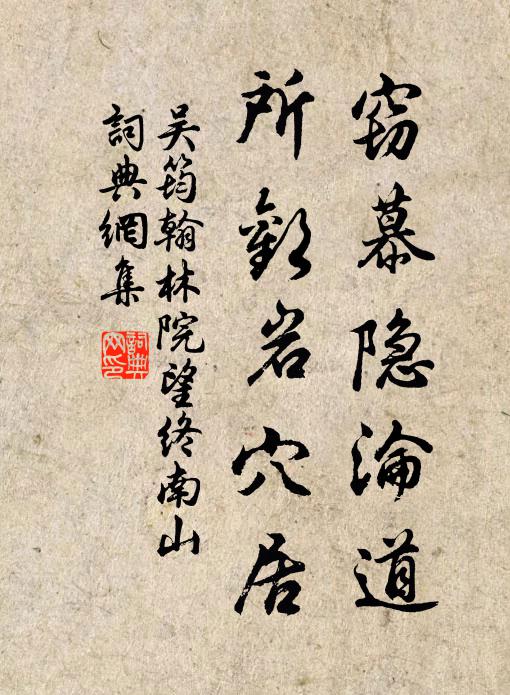 窃慕隐淪道
所歡岩穴居
吴筠翰林院望终南山
詞典網集
詞典
网印